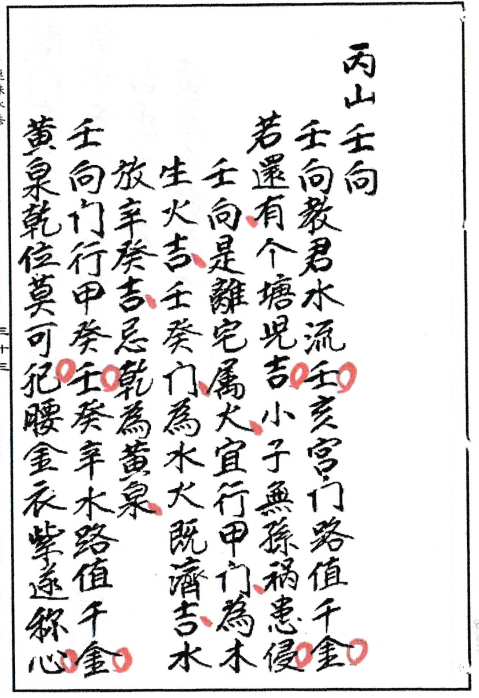 丙山壬向
壬向教君水流壬。亥宫门路值千金。
若還有个塘兒吉。小子無孫禍患侵。
壬向、是離宅属火、宜行甲门、為木
生火吉、壬癸门、為水火既濟吉、水
放辛癸吉、忌乾為黄泉、
壬向门行甲癸。壬癸辛水路值千金。
黄泉乾位莫可犯。腰金衣紫遂称心。
三十三